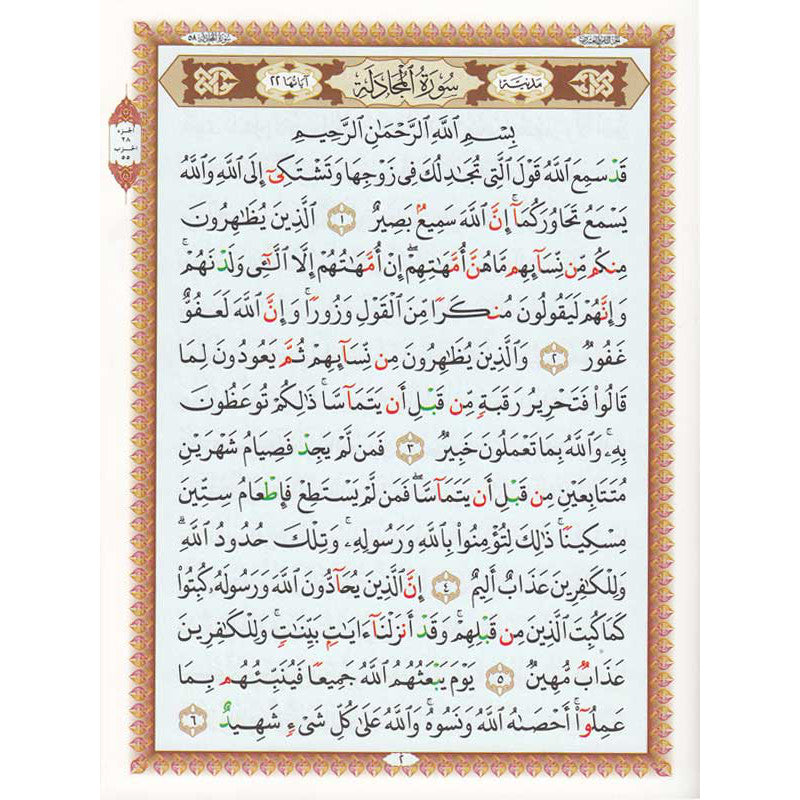 الجزء الثامن والعشرون
سورة المجادلة ٥٨
مدنية
سُورَةُ الْمُجَادلَةِ
آياتها ٢٢
الجزء
٢٨
الحزب
٥٥
بِسْمِ اللَّهِ الرَّحْمَٰنِ الرَّحِيمِ
قَدْ سَمِعَ اللَّهُ قَوْلَ الَّتِي تُجَادِلُكَ فِي زَوْجِهَا وَتَشْتَكِي إِلَى اللَّهِ وَاللَّهُ
يَسْمَعُ تَحَاوُرَكُمَا ۚ إِنَّ اللَّهَ سَمِيعٌ بَصِيرٌ ١ الَّذِينَ يُظَاهِرُونَ
مِنكُم مِّن نِّسَائِهِم مَّا هُنَّ أُمَّهَاتِهِمْ ۖ إِنْ أُمَّهَاتُهُمْ إِلَّا اللَّائِي وَلَدْنَهُمْ ۚ
وَإِنَّهُمْ لَيَقُولُونَ مُنكَرًا مِّنَ الْقَوْلِ وَزُورًا ۚ وَإِنَّ اللَّهَ لَعَفُوٌّ
غَفُورٌ ٢ وَالَّذِينَ يُظَاهِرُونَ مِن نِّسَائِهِمْ ثُمَّ يَعُودُونَ لِمَا
قَالُوا فَتَحْرِيرُ رَقَبَةٍ مِّن قَبْلِ أَن يَتَمَاسَّا ۚ ذَٰلِكُمْ تُوعَظُونَ
بِهِ ۚ وَاللَّهُ بِمَا تَعْمَلُونَ خَبِيرٌ ٣ فَمَن لَّمْ يَجِدْ فَصِيَامُ شَهْرَيْنِ
مُتَتَابِعَيْنِ مِن قَبْلِ أَن يَتَمَاسَّا ۖ فَمَن لَّمْ يَسْتَطِعْ فَإِطْعَامُ سِتِّينَ
مِسْكِينًا ۚ ذَٰلِكَ لِتُؤْمِنُوا بِاللَّهِ وَرَسُولِهِ ۚ وَتِلْكَ حُدُودُ اللَّهِ ۗ
وَلِلْكَافِرِينَ عَذَابٌ أَلِيمٌ ٤ إِنَّ الَّذِينَ يُحَادُّونَ اللَّهَ وَرَسُولَهُ كُبِتُوا
كَمَا كُبِتَ الَّذِينَ مِن قَبْلِهِمْ ۚ وَقَدْ أَنزَلْنَا آيَاتٍ بَيِّنَاتٍ ۚ وَلِلْكَافِرِينَ
عَذَابٌ مُّهِينٌ ٥ يَوْمَ يَبْعَثُهُمُ اللَّهُ جَمِيعًا فَيُنَبِّئُهُم بِمَا
عَمِلُوا ۚ أَحْصَاهُ اللَّهُ وَنَسُوهُ ۚ وَاللَّهُ عَلَىٰ كُلِّ شَيْءٍ شَهِيدٌ ٦
٢